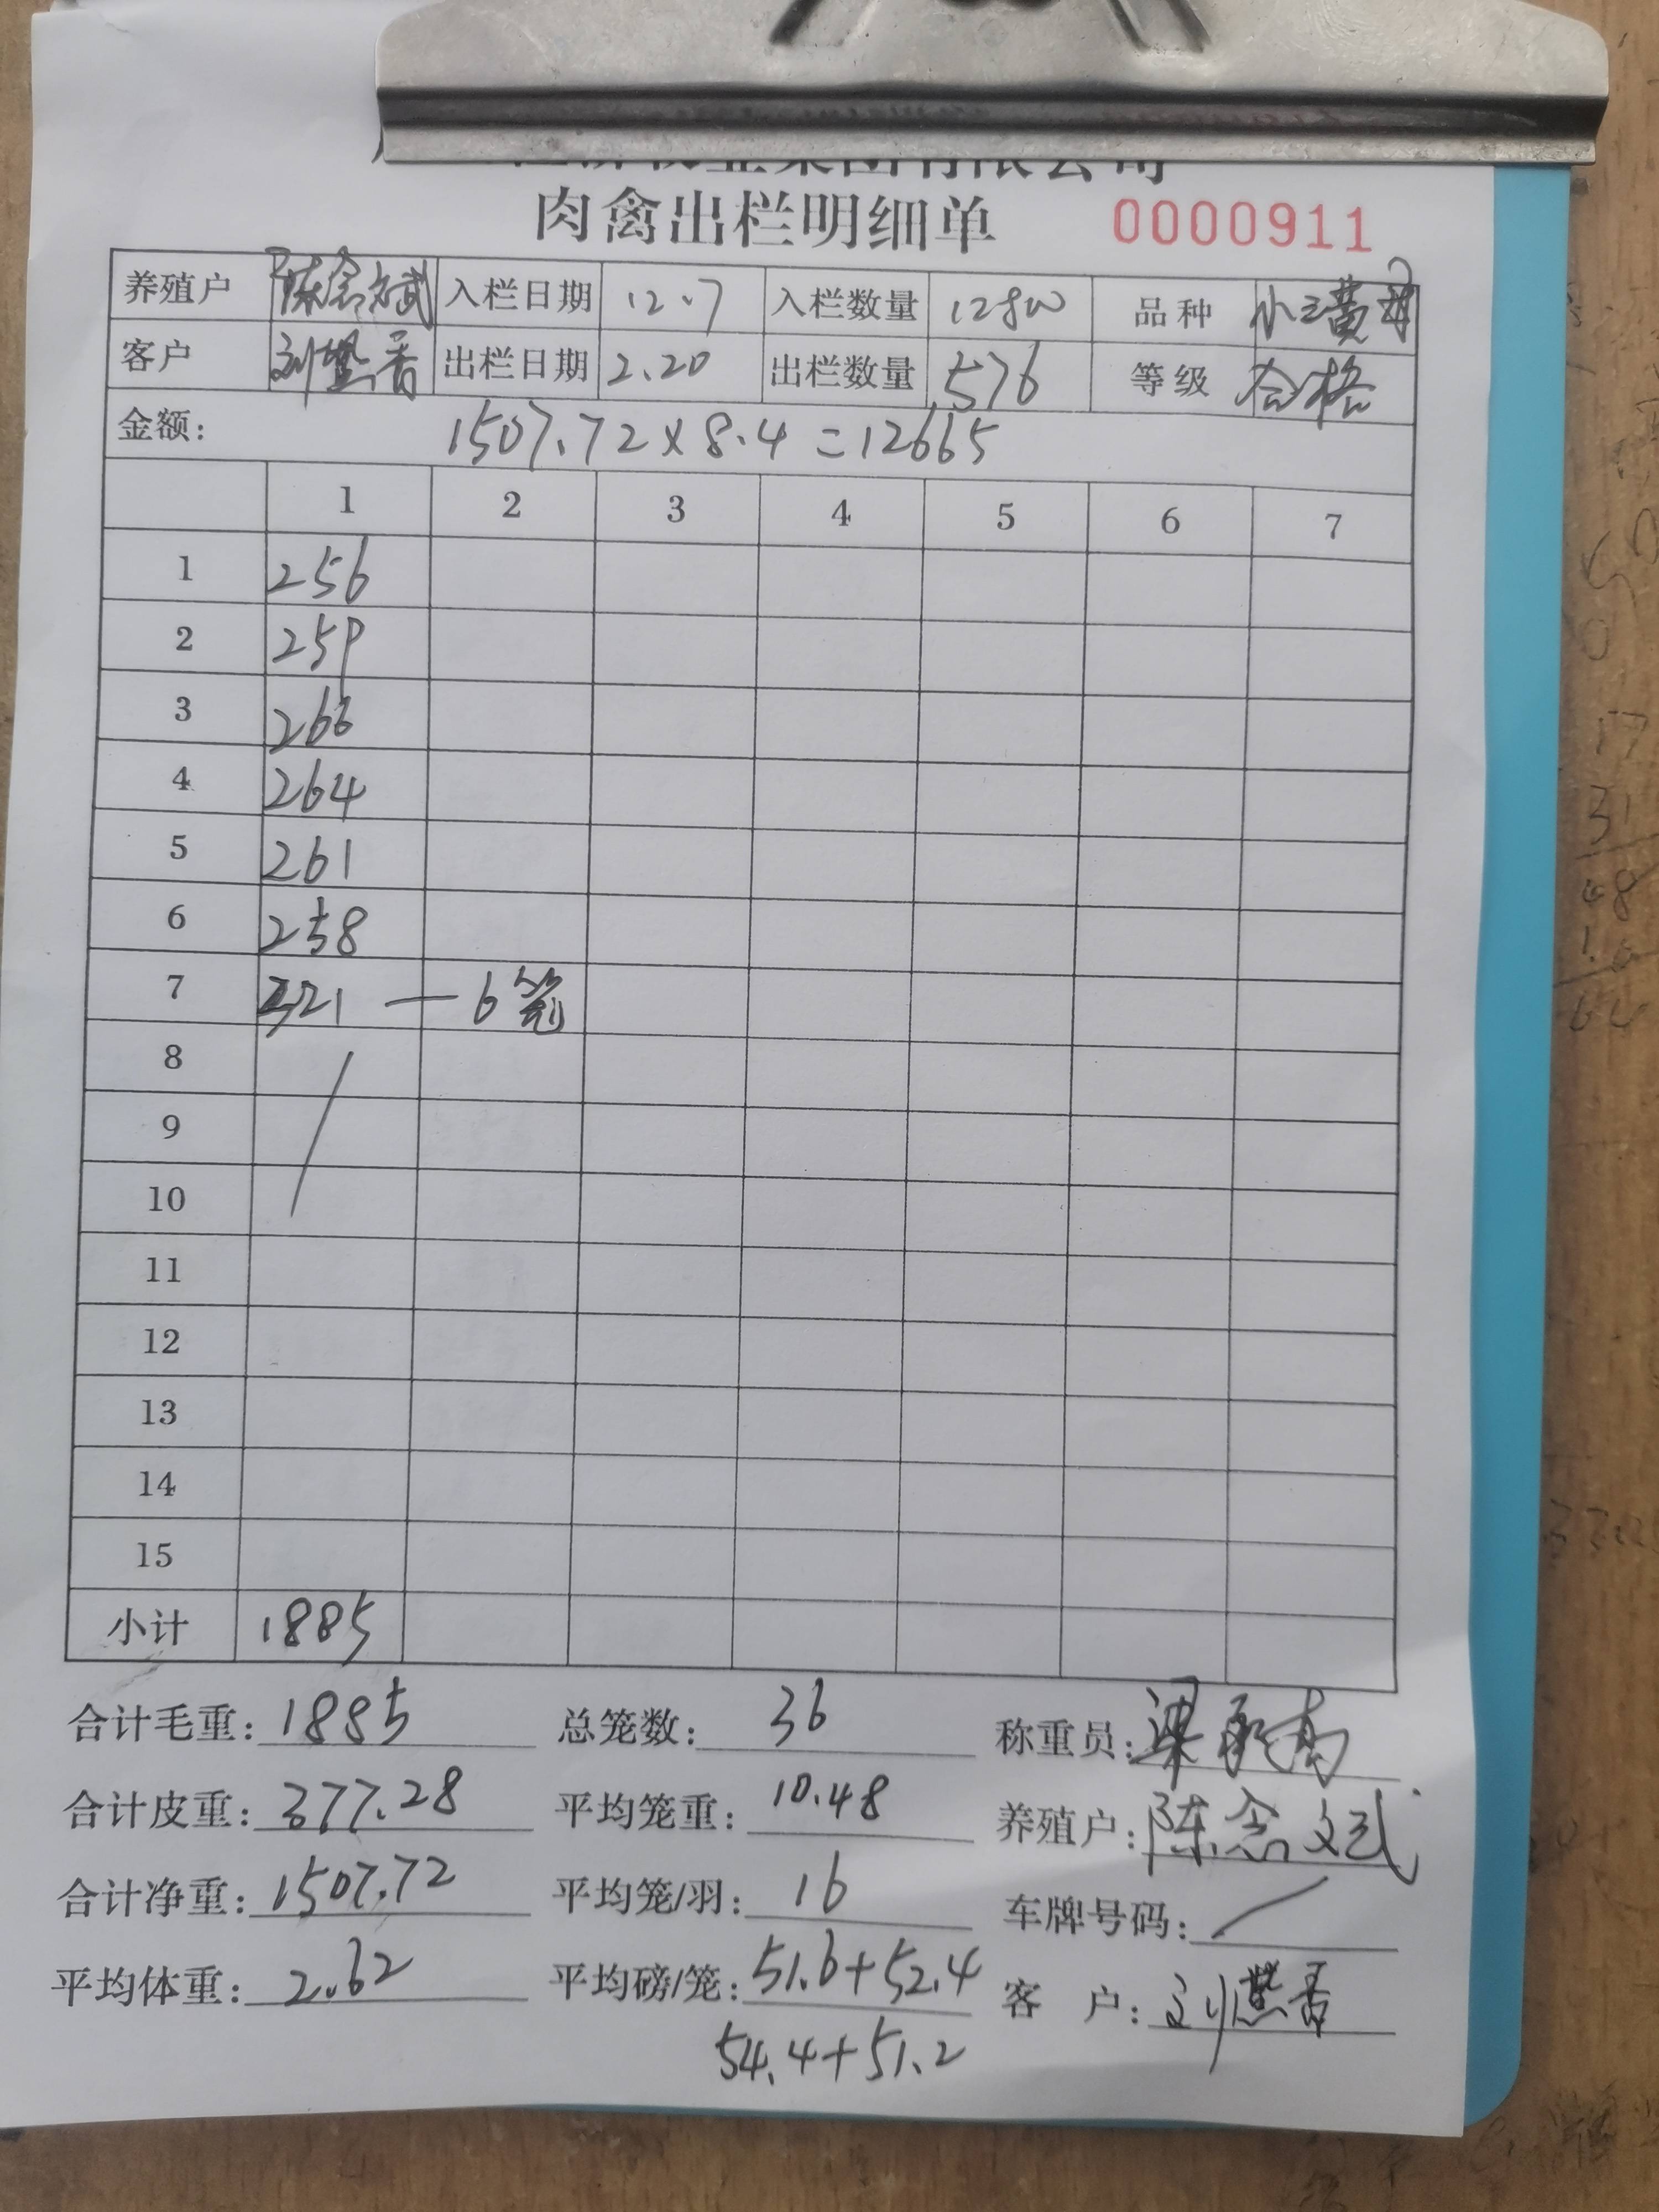 集团有限公司
肉禽出栏明细单 0000911
养殖户 陈念文武 入栏日期 12.7 入栏数量 12800 品种 小三黄母
客户 刘 香 出栏日期 2.20 出栏数量 576 等级 合格
金额: 1507.72×8.4=12665
1 2 3 4 5 6 7
1 256
2 259
3 266
4 264
5 261
6 258
7 321 — 6笼
8
9
10
11
12
13
14
15
小计 1885
合计毛重: 1885 总笼数: 36 称重员: 梁
合计皮重: 377.28 平均笼重: 10.48 养殖户: 陈念文武
合计净重: 1507.72 平均笼/羽: 16 车牌号码: /
平均体重: 2.62 平均磅/笼: 51.6+52.4 客 户: 刘 香
54.4+51.2